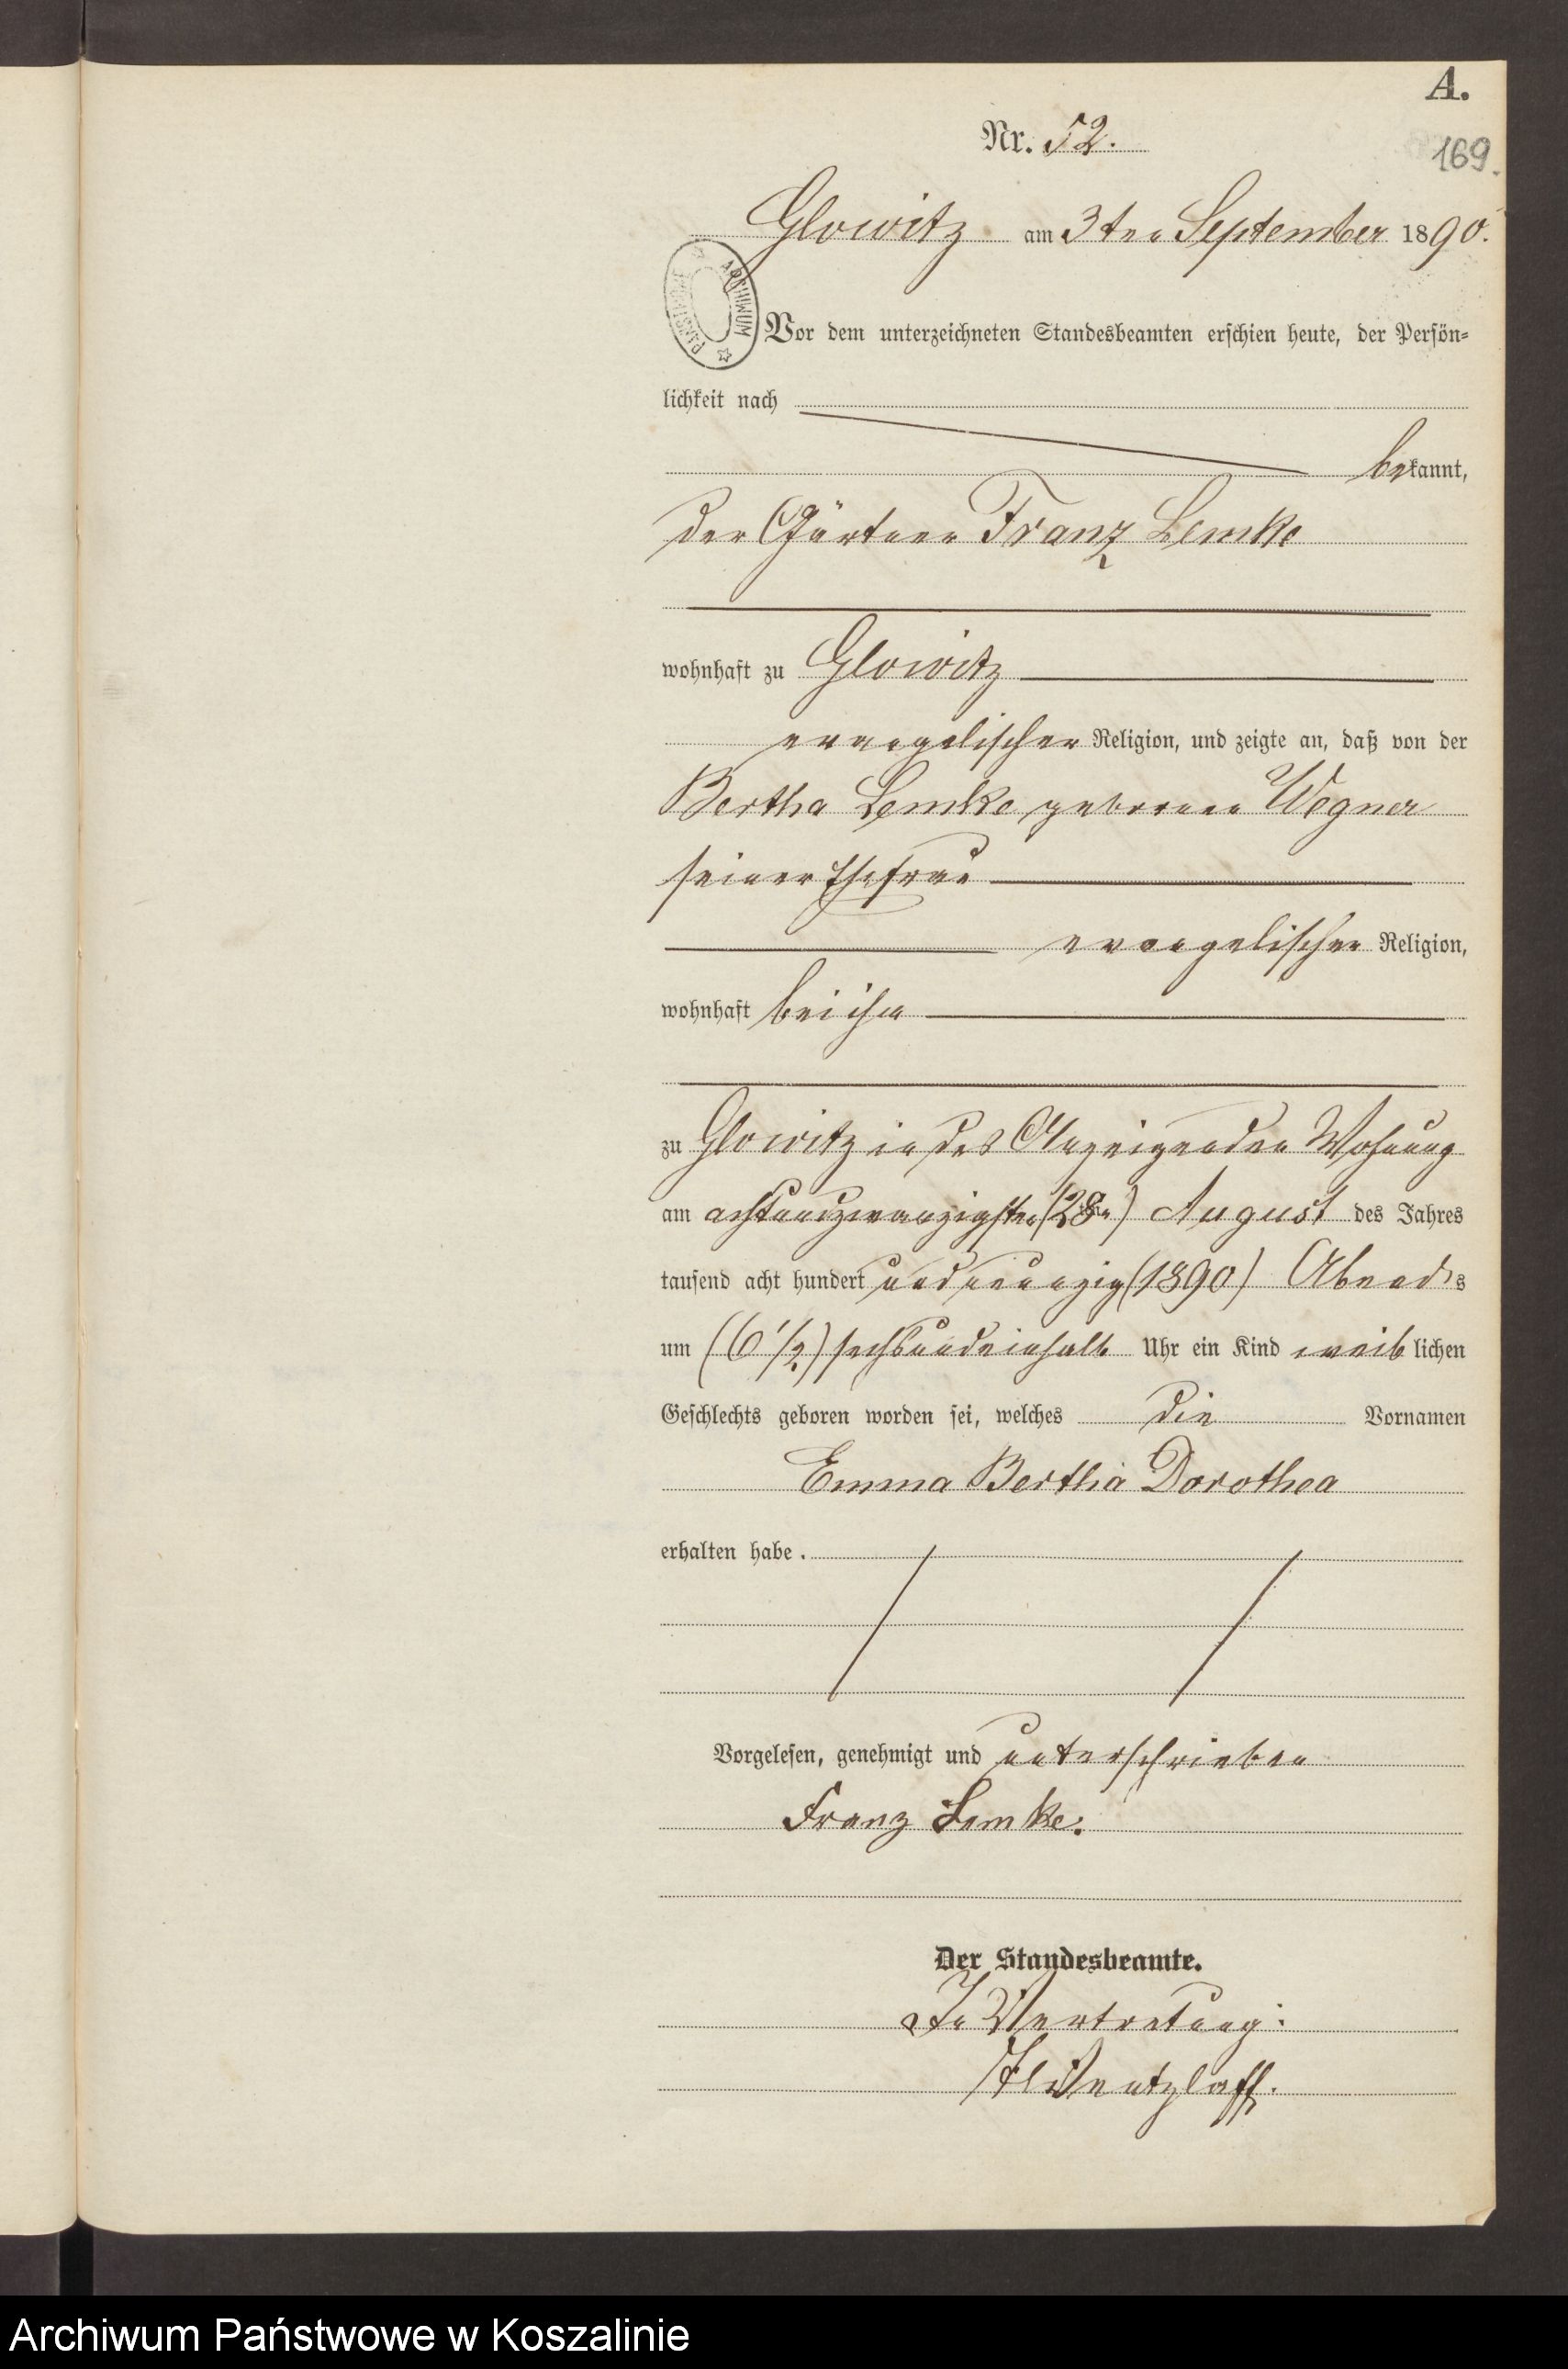 A.
Nr. 52.
169.
Glowitz am 3ten September 1890.
ARCHIWUM PAŃSTWOWE
Vor dem unterzeichneten Standesbeamten erschien heute, der Persön-
lichkeit nach
bekannt,
der Gärtner Franz Lemke
wohnhaft zu Glowitz
evangelischer Religion, und zeigte an, daß von der
Bertha Lemke geborenen Wegner
seiner Ehefrau
evangelischer Religion,
wohnhaft bei ihm
zu Glowitz in des Anzeigenden Wohnung
am achtundzwanzigsten (28ten) August des Jahres
tausend acht hundert und neunzig (1890) Abends
um (6 1/2) sechsundeinhalb Uhr ein Kind weiblichen
Geschlechts geboren worden sei, welches die Vornamen
Emma Bertha Dorothea
erhalten habe.
Vorgelesen, genehmigt und unterschrieben
Franz Lemke.
Der Standesbeamte.
In Vertretung:
Wentzlaff.
Archiwum Państwowe w Koszalinie